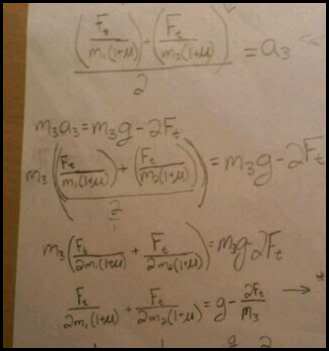 ((F_t / m_1(1+μ)) + (F_t / m_2(1+μ))) / 2 = a_3
m_3a_3 = m_3g - 2F_t
m_3(((F_t / m_1(1+μ)) + (F_t / m_2(1+μ))) / 2) = m_3g - 2F_t
m_3(F_t / 2m_1(1+μ) + F_t / 2m_2(1+μ)) = m_3g 2F_t
F_t / 2m_1(1+μ) + F_t / 2m_2(1+μ) = g - 2F_t / m_3 →